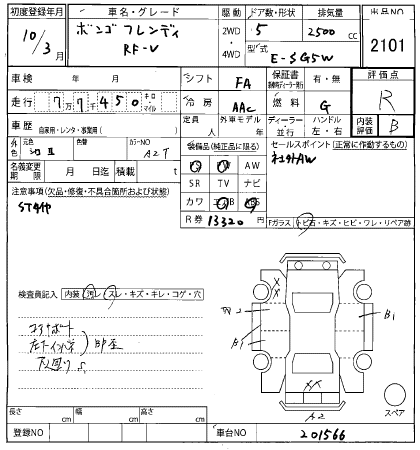 初度登録年月 車名・グレード 駆動 ドア数・形状 排気量 出品NO
10/3月 ボンゴフレンディ RF-V 2WD・4WD 5 2500 CC 2101
型式 E-SG5W
車検 年 月 シフト FA 保証書 有・無 評価点
走行 7万7千450 キロ・マイル 冷房 AAC 燃料 G R
車歴 自家用・レンタ・事業用( ) 定員 人 外車モデル 年 ディーラー・並行 ハンドル 左・右 内装 B
外色 元色 色替 カラーNO A2T 装備品(純正品に限る) セールスポイント(正常に作動するもの)
PS PW AW 社外AW
名義変更期限 月 日迄 積載 t SR TV ナビ
注意事項(欠品・修復・不具合箇所および状態) カワ ABS
R券 13320
Fガラス トビ石・キズ・ヒビ・ワレ・リペア跡
検査員記入 内装 汚レ・スレ・キズ・キレ・コゲ・穴
コアサポート
下廻り
XX
B1
B1
XX
A2
スペア
長さ cm 幅 cm 高さ cm
登録NO 車台NO 201566